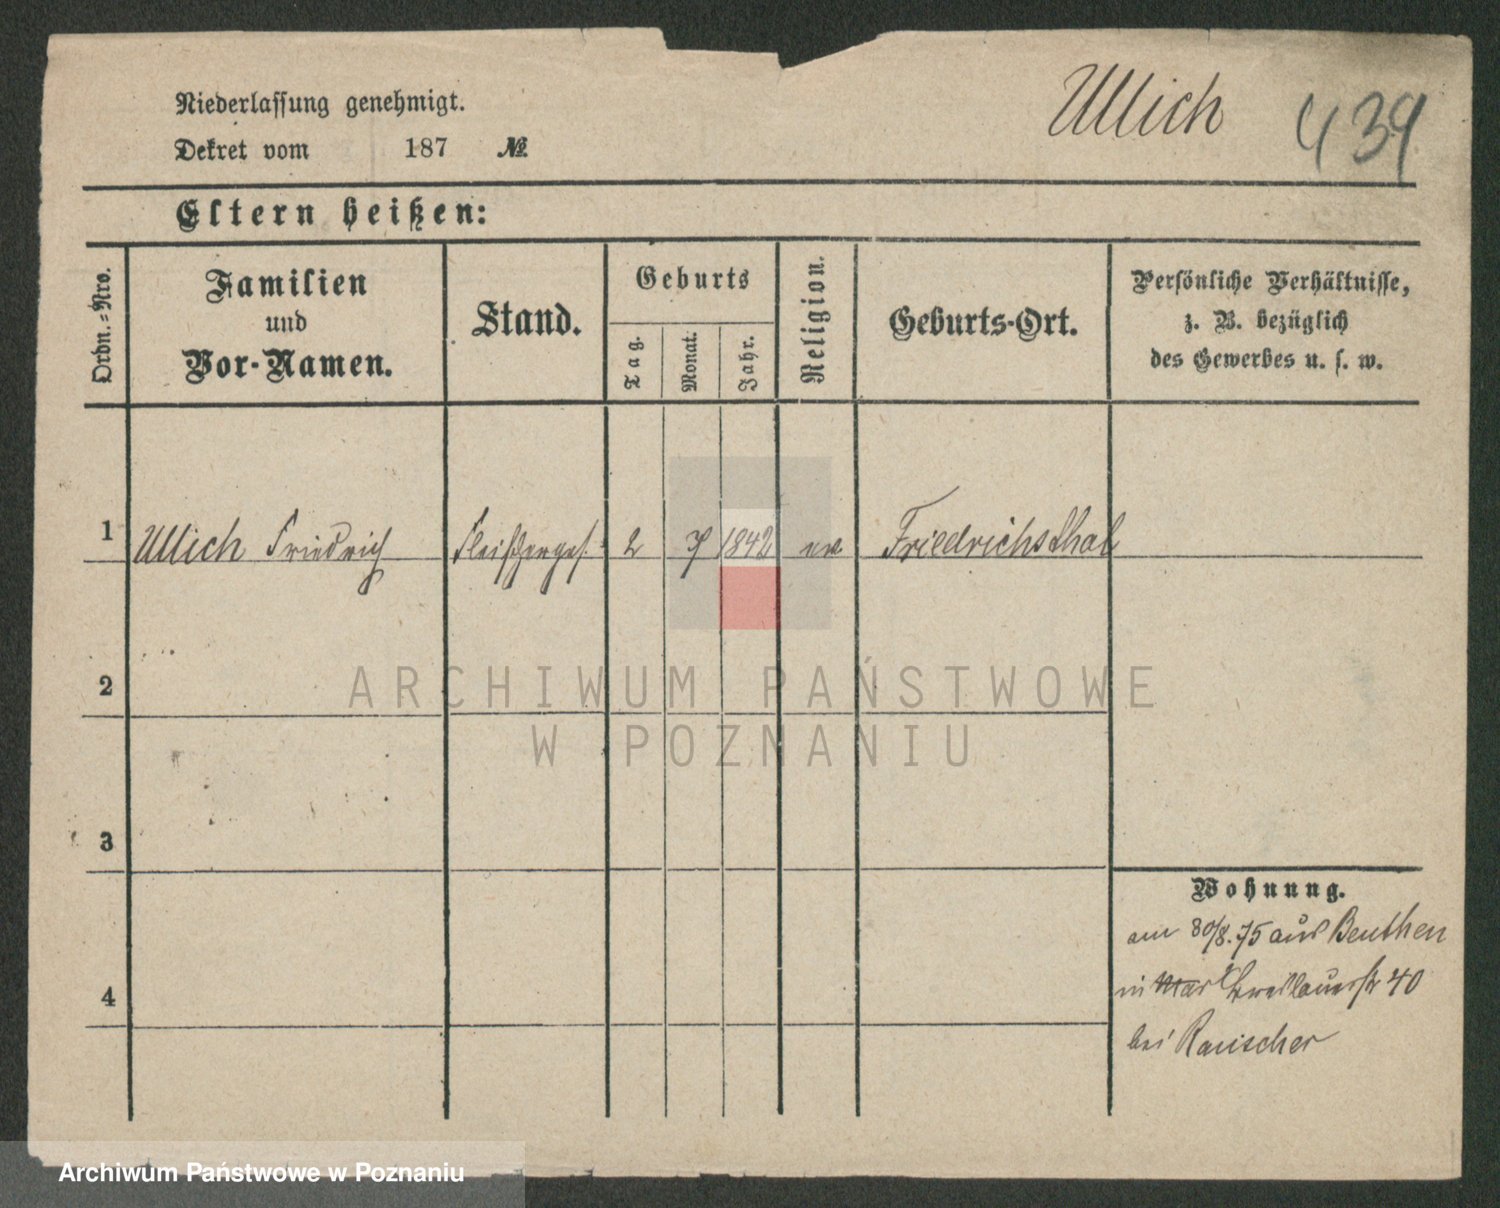 Niederlassung genehmigt.
Dekret vom 187 №
Ullich 439
Eltern heißen:
Ordn.-Nro.
Familien
und
Vor-Namen.
Stand.
Geburts
Tag.
Monat.
Jahr.
Religion.
Geburts-Ort.
Persönliche Verhältnisse,
z. B. bezüglich
des Gewerbes u. s. w.
1 Ullich Friedrich Fleischerges. 2 7 1842 ev Friedrichsthal
2
ARCHIWUM PAŃSTWOWE
W POZNANIU
3
Wohnung.
am 30/8.75 aus Beuthen
in Breslauerstr 40
4
bei Rauscher
Archiwum Państwowe w Poznaniu